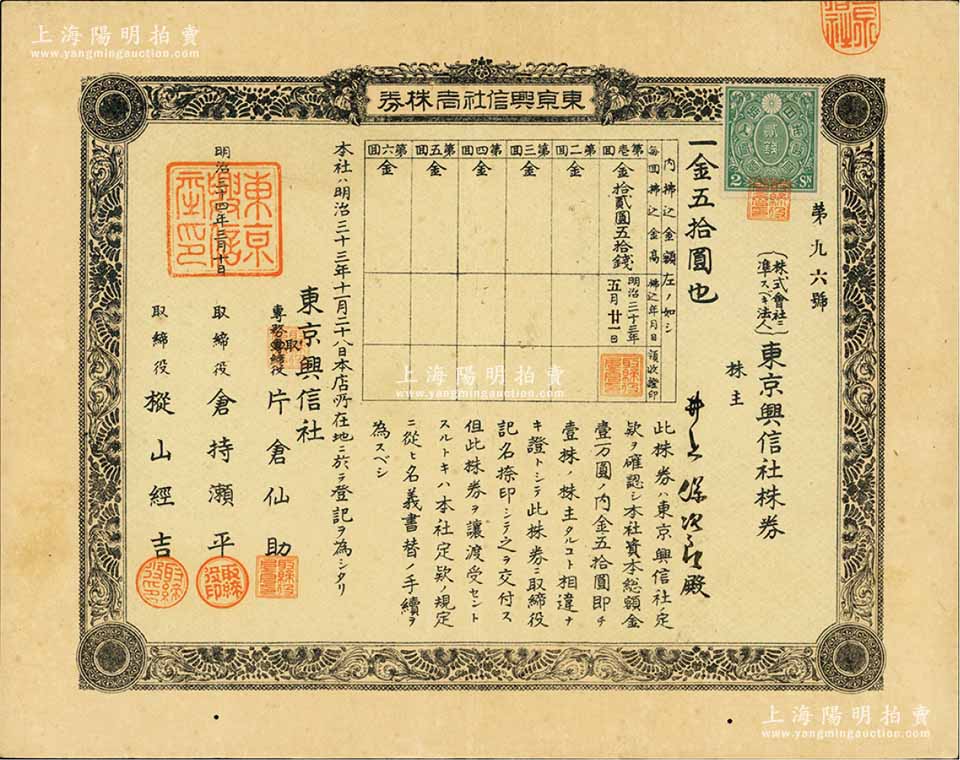 上海陽明拍賣
www.yangmingauction.com
東京興信社株券
第九六號
(株式會社ニ準スベキ法人)東京興信社株券
株主
井上保次郎殿
貳錢
2 SN
一金五拾圓也
内拂込金額左ノ如シ
每回拂込金高
拂込年月日
領收證印
第壱回
金拾貳圓五拾錢
明治三十三年五月廿一日
第二回
金
第三回
金
第四回
金
第五回
金
第六回
金
此株券ハ東京興信社ノ定
欵ヲ確認シ本社資本總額金
壹万圓ノ内金五拾圓即チ
壹株ノ株主タルコト相違ナ
キ證トシテ此株券ニ取締役
記名捺印シテ之ヲ交付ス
但此株券ヲ讓渡受セント
スルトキハ本社定欵ノ規定
ニ從ヒ名義書替ノ手續ヲ
為スベシ
本社ハ明治三十三年十一月二十八日本店所在地ニ於テ登記ヲ為シタリ
東京興信社
專務取締役 片倉仙助
取締役 倉持瀬平
取締役 樅山經吉
明治三十四年三月十日
東京興信社印
上海陽明拍賣
www.yangmingauction.com
上海陽明拍賣
www.yangmingauction.com